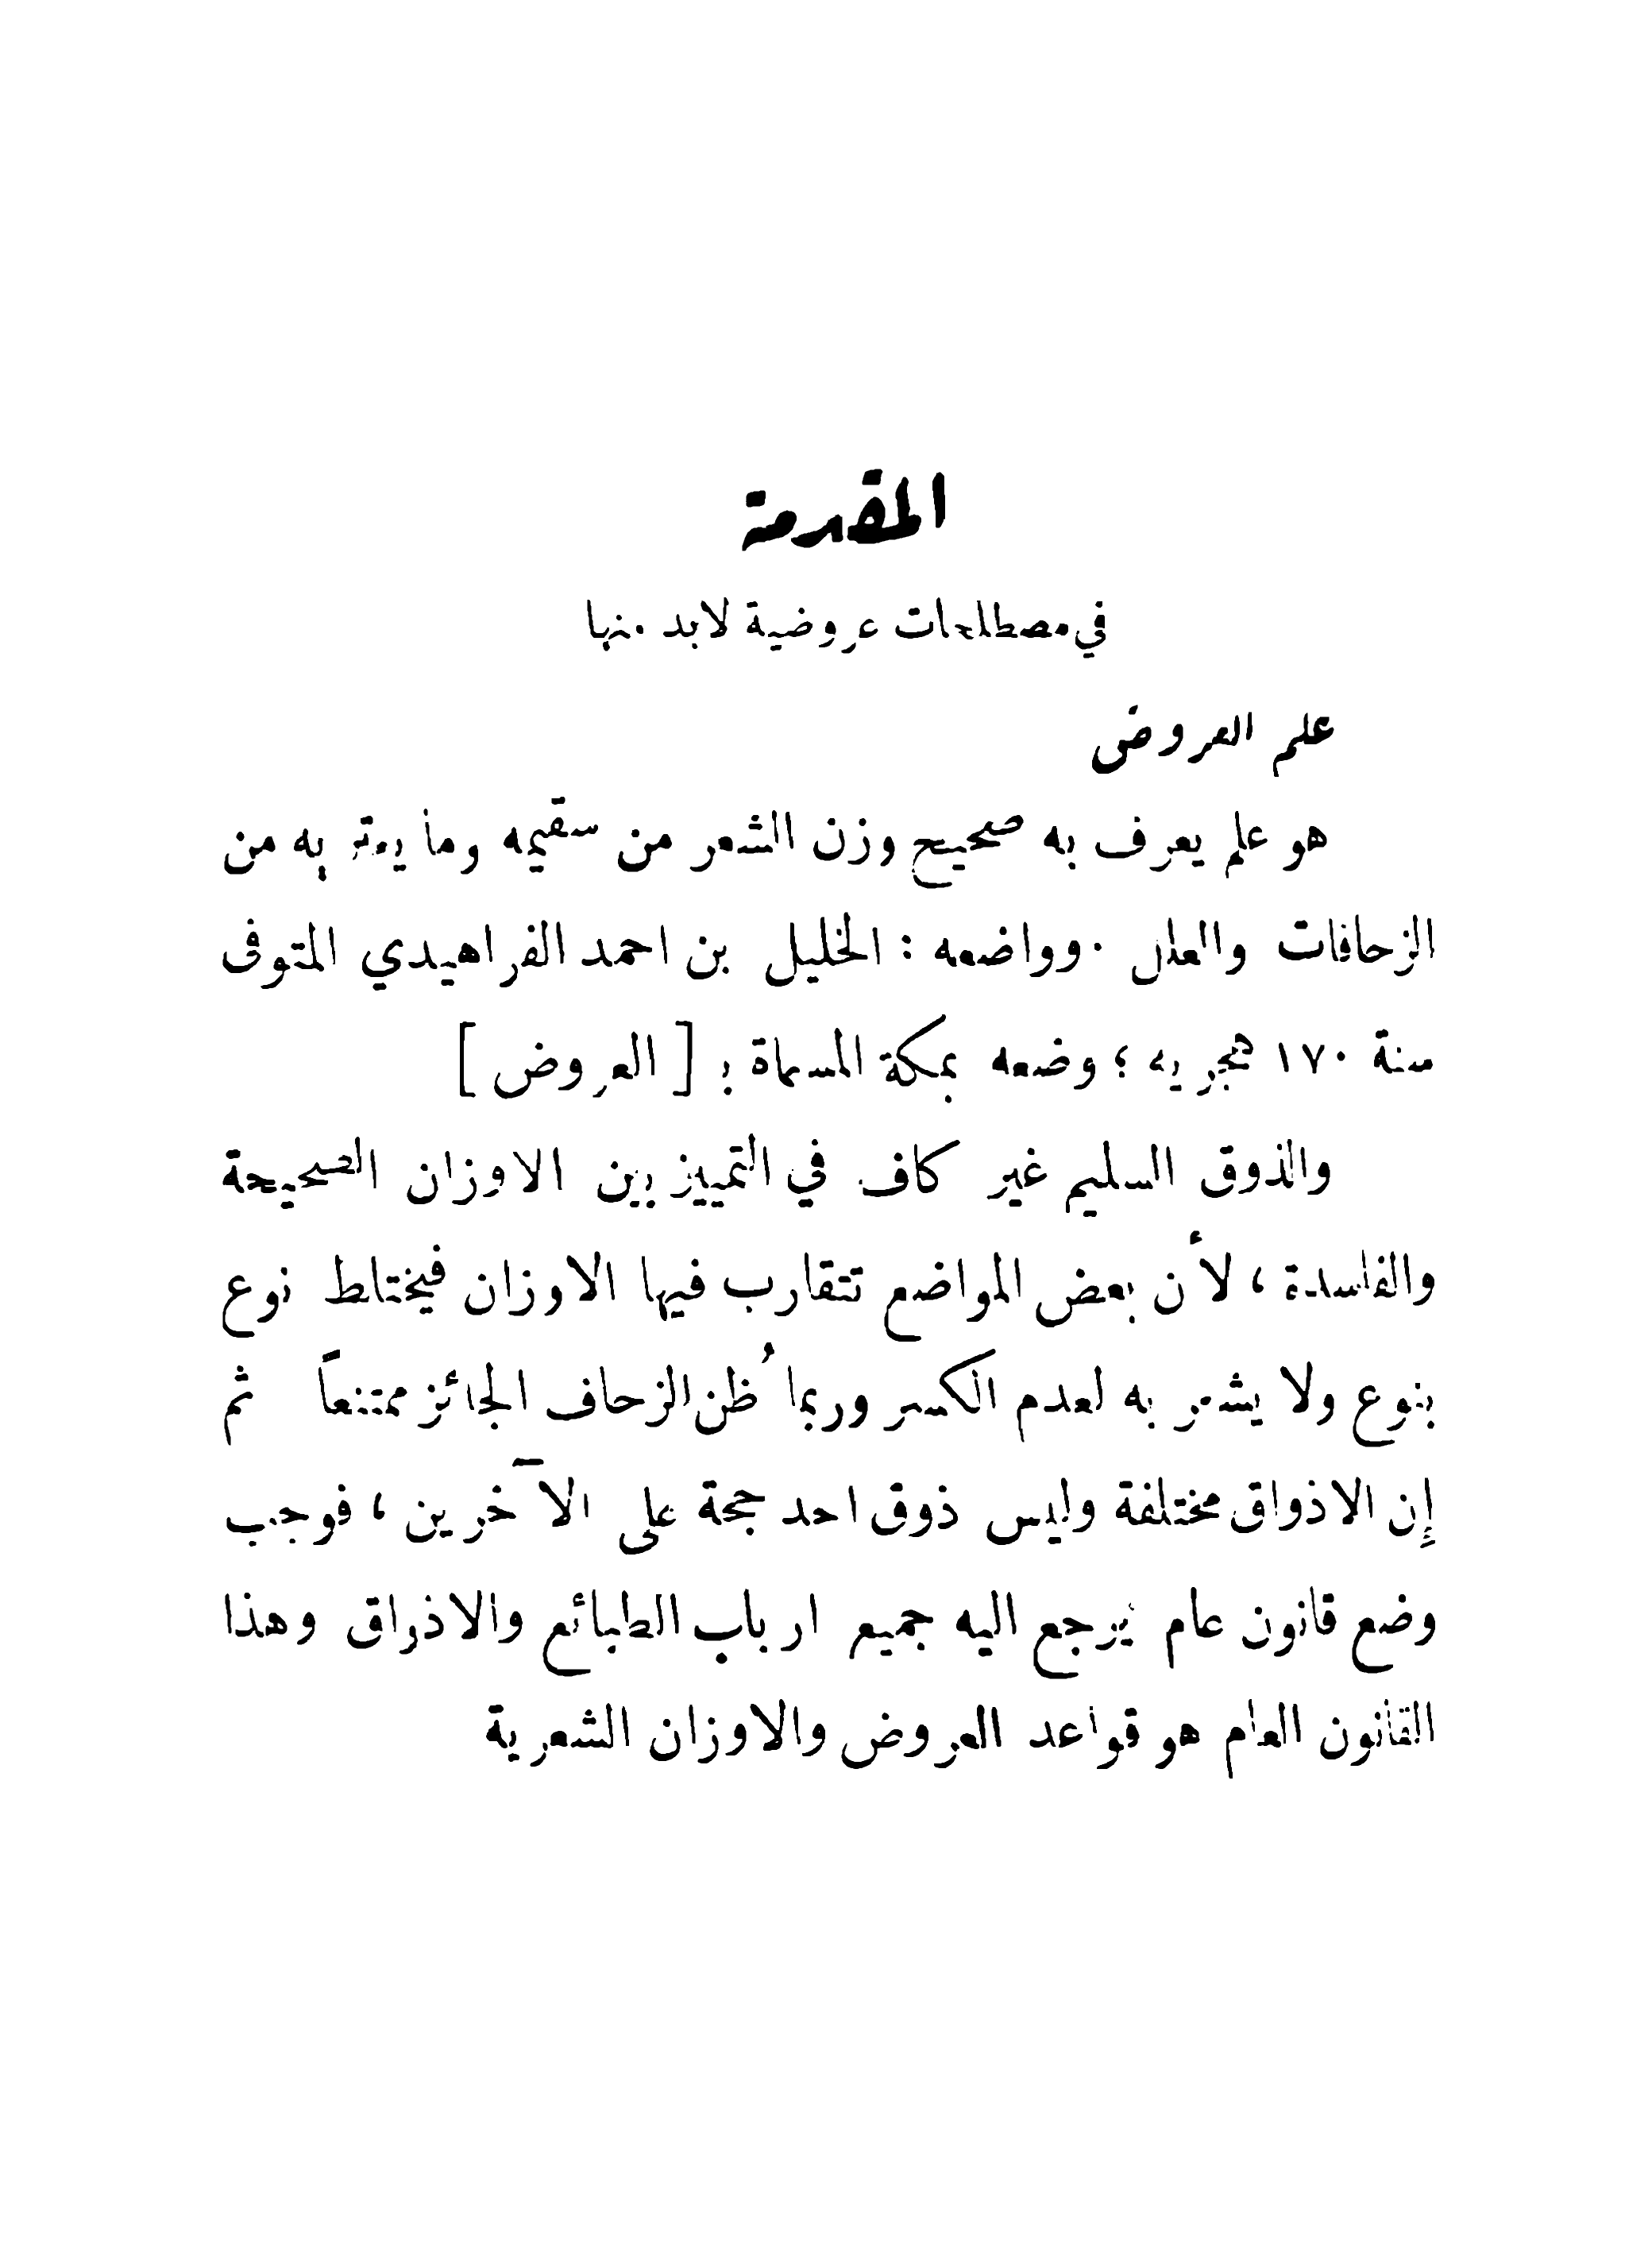 المقدمة
في مصطلحات عروضية لابد منها
علم العروض
هو علم يعرف به صحيح وزن الشعر من سقيمه وما يعتر به من
الزحافات والعلل . وواضعه : الخليل بن احمد الفراهيدي المتوفى
سنة ١٧٠ هجرية ؛ وضعه بمكة المسماة بـ [ العروض ]
والذوق السليم غير كاف في التمييز بين الاوزان الصحيحة
والفاسدة ، لأن بعض المواضع تتقارب فيها الاوزان فيختلط نوع
بنوع ولا يشعر به لعدم الكسر وربما ُظن الزحاف الجائز ممتنعاً ثم
إن الاذواق مختلفة وليس ذوق احد حجة على الآخرين ، فوجب
وضع قانون عام يرجع اليه جميع ارباب الطبائع والاذواق وهذا
القانون العام هو قواعد العروض والاوزان الشعرية